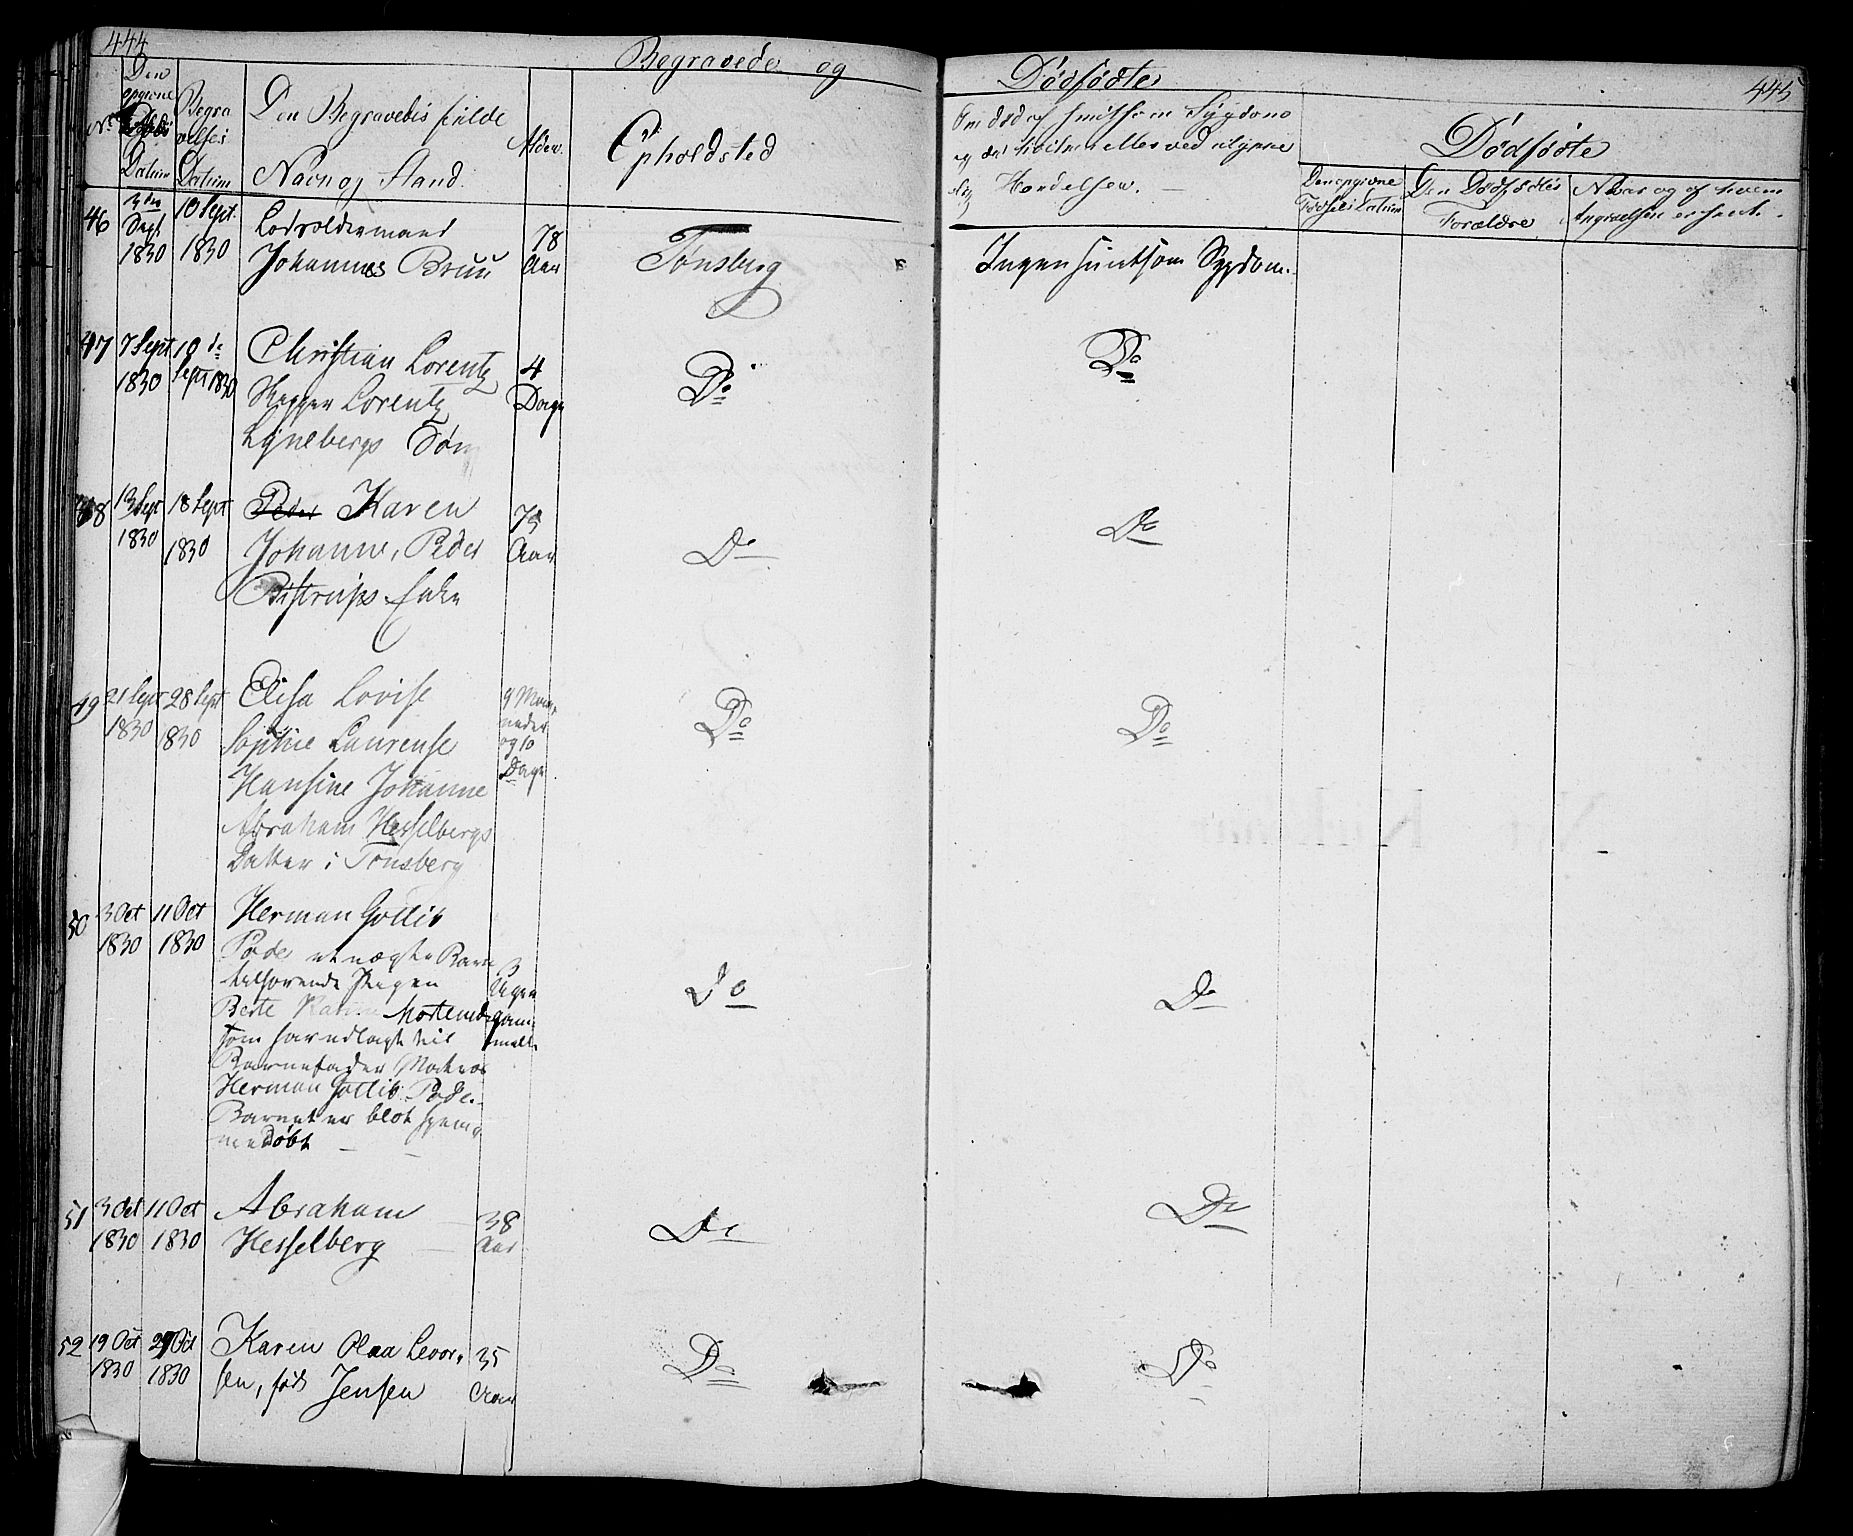 444
Begravede og
Dødfødte
445
No
Den opgivne Døds Datum
Begravelses Datum
Den Begravedes fulde
Navn og Stand.
Alder.
Opholdsted
Om død af smitsom Sygdom
og
eller ved
Hændelser.
Dødfødte
Den opgivne
Fødsels Datum
Den Dødfødtes
Forældre
Naar og af hvem
Angivelsen er skeet.
46
3die
Sept
1830
10 Sept.
1830
Lodsoldermand
Johannes Bruu
78
Aar
Tønsberg
Ingen smitsom Sygdom.
47
7 Sept
1830
10de
Sept 1830
Christian Lorentz
Lorentz
Lynebergs Søn
4
Dage
Do
Do
48
13 Sept
1830
18 Sept
1830
Peder Karen
Johanne, Peder
Bistrups Enke
75
Aar
Do
Do
49
21 Sept
1830
28 Sept
1830
Elisa Lovise
Sophie Laurense
Hansine Johanne
Abraham Hesselbergs
Datter i Tønsberg
9 Maa-
neder
og 10
Dage
Do
Do
50
3 Oct
1830
11 Oct
1830
Herman Gotlib
Pode uægte Barn
tilhørende Pigen
Berte Mortensd
som har udlagt til
Barnefader Matros
Herman Gotlib Pode.
Barnet er blot hjem-
medøbt
3
Uger
gam-
mel
Do
Do
51
3 Oct
1830
11 Oct
1830
Abraham
Hesselberg
38
Aar
Do
Do
52
19 Oct
1830
29 Oct
1830
Karen Olaa Levor-
sen, født Jensen
35
Aar
Do
Do